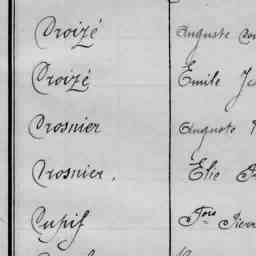 Croizé Auguste
Croizé Emile
Crosnier Auguste
Crosnier. Elie
Cupif Fois Pierre